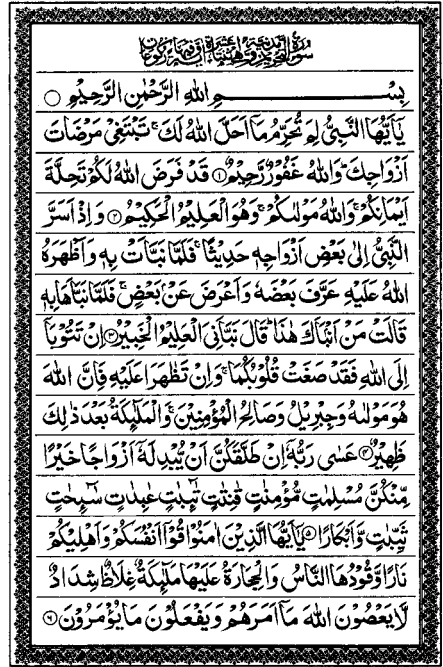 سُوْرَةُ التَّحْرِيْمِ مَدَنِيَّةٌ وَّهِيَ اثْنَتَا عَشْرَةَ اٰيَةً وَّفِيْهَا رُكُوْعَانِ
بِسْمِ اللهِ الرَّحْمٰنِ الرَّحِيْمِ ○
يٰۤاَيُّهَا النَّبِيُّ لِمَ تُحَرِّمُ مَاۤ اَحَلَّ اللهُ لَكَ ۚ تَبْتَغِيْ مَرْضَاتَ
اَزْوَاجِكَ ؕ وَاللهُ غَفُوْرٌ رَّحِيْمٌ ۝۱ قَدْ فَرَضَ اللهُ لَكُمْ تَحِلَّةَ
اَيْمَانِكُمْ ۚ وَاللهُ مَوْلٰىكُمْ ۚ وَهُوَ الْعَلِيْمُ الْحَكِيْمُ ۝۲ وَاِذْ اَسَرَّ
النَّبِيُّ اِلٰى بَعْضِ اَزْوَاجِهٖ حَدِيْثًا ۚ فَلَمَّا نَبَّاَتْ بِهٖ وَاَظْهَرَهُ
اللهُ عَلَيْهِ عَرَّفَ بَعْضَهٗ وَاَعْرَضَ عَنْۢ بَعْضٍ ۚ فَلَمَّا نَبَّاَهَا بِهٖ
قَالَتْ مَنْ اَنْۢبَاَكَ هٰذَا ؕ قَالَ نَبَّاَنِيَ الْعَلِيْمُ الْخَبِيْرُ ۝۳ اِنْ تَتُوْبَاۤ
اِلَى اللهِ فَقَدْ صَغَتْ قُلُوْبُكُمَا ۚ وَاِنْ تَظٰهَرَا عَلَيْهِ فَاِنَّ اللهَ
هُوَ مَوْلٰىهُ وَجِبْرِيْلُ وَصَالِحُ الْمُؤْمِنِيْنَ ۚ وَالْمَلٰٓئِكَةُ بَعْدَ ذٰلِكَ
ظَهِيْرٌ ۝۴ عَسٰى رَبُّهٗۤ اِنْ طَلَّقَكُنَّ اَنْ يُّبْدِلَهٗۤ اَزْوَاجًا خَيْرًا
مِّنْكُنَّ مُسْلِمٰتٍ مُّؤْمِنٰتٍ قٰنِتٰتٍ تٰٓئِبٰتٍ عٰبِدٰتٍ سٰٓئِحٰتٍ
ثَيِّبٰتٍ وَّاَبْكَارًا ۝۵ يٰۤاَيُّهَا الَّذِيْنَ اٰمَنُوْا قُوْۤا اَنْفُسَكُمْ وَاَهْلِيْكُمْ
نَارًا وَّقُوْدُهَا النَّاسُ وَالْحِجَارَةُ عَلَيْهَا مَلٰٓئِكَةٌ غِلَاظٌ شِدَادٌ
لَّا يَعْصُوْنَ اللهَ مَاۤ اَمَرَهُمْ وَيَفْعَلُوْنَ مَا يُؤْمَرُوْنَ ۝۶